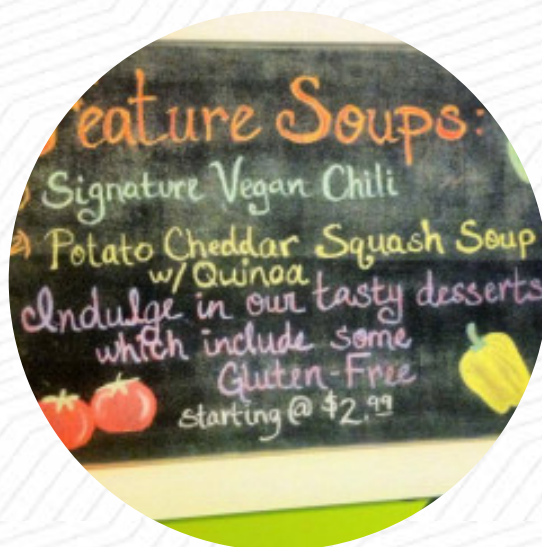 eature Soups:
Signature Vegan Chili
2) Potato Cheddar Squash Soup
w/Quinoa
Indulge in our tasty desserts
which include some
Gluten-Free
starting @ $2.99